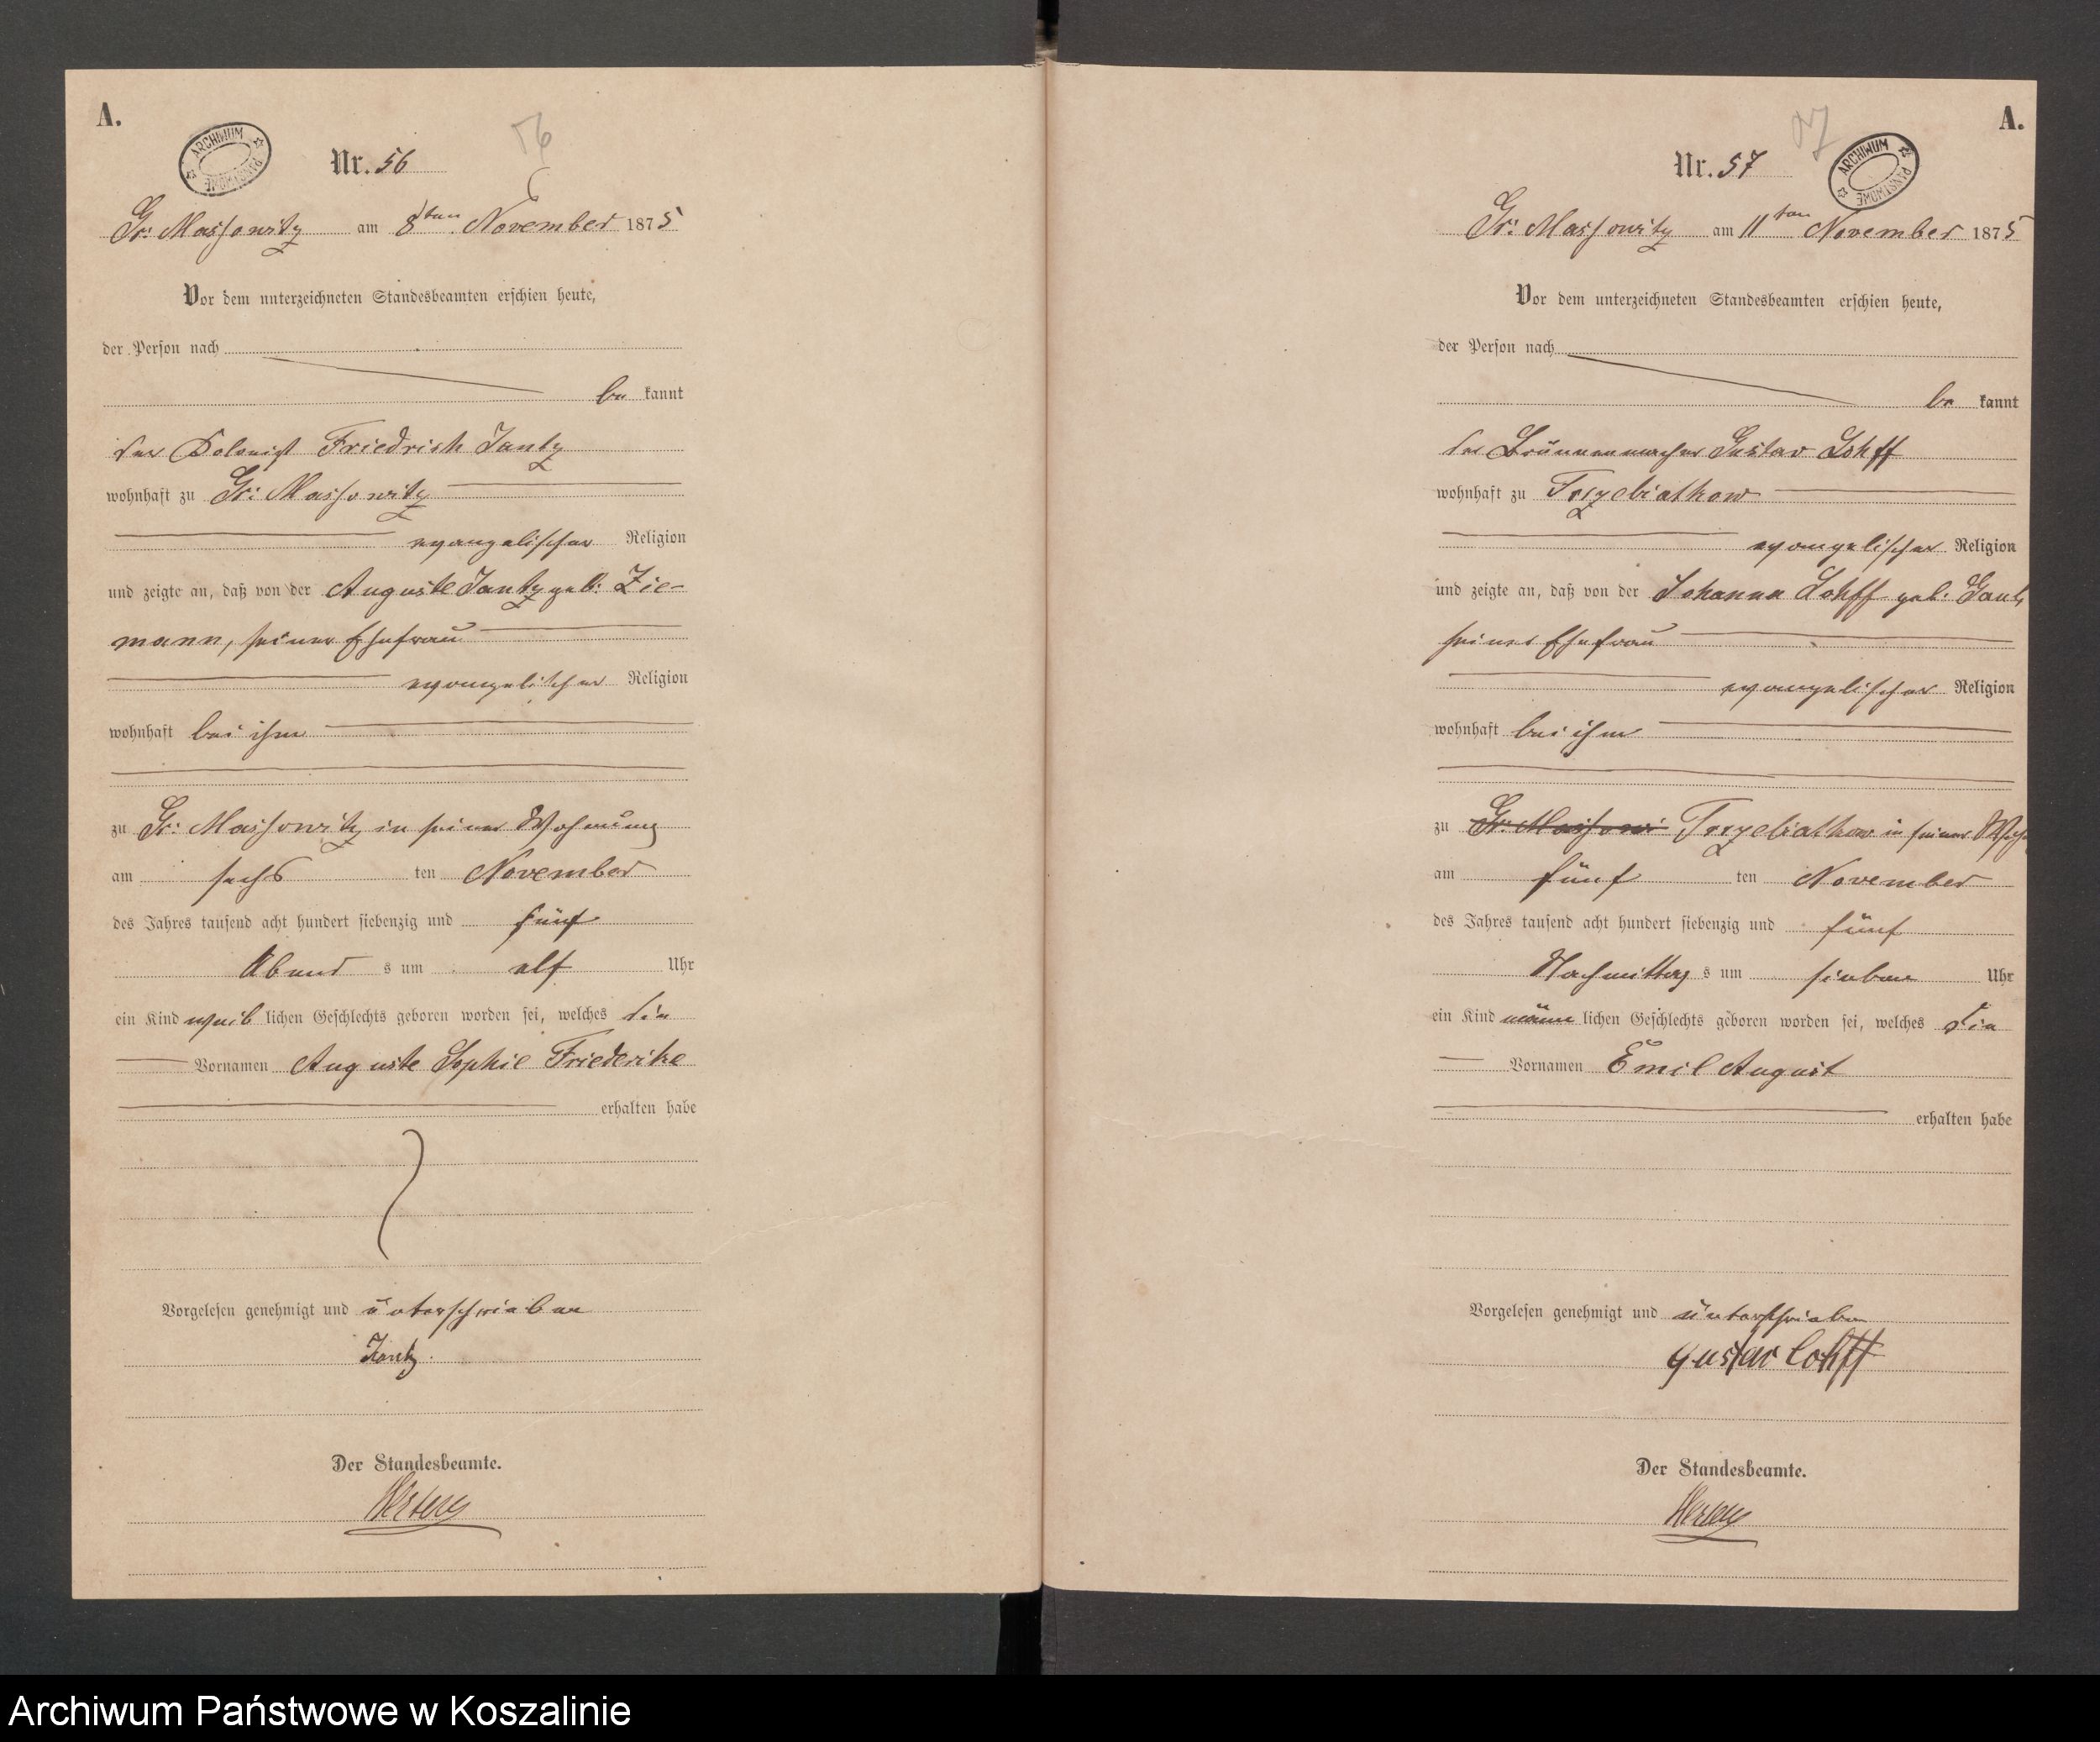 A.
ARCHIWUM PAŃSTWOWE
56
Nr. 56
Gr: Massowitz am 8ten November 1875
Vor dem unterzeichneten Standesbeamten erschien heute,
der Person nach
be kannt
der Kolonist Friedrich Jantz
wohnhaft zu Gr: Massowitz
evangelischer Religion
und zeigte an, daß von der Auguste Jantz geb: Zie-
mann, seiner Ehefrau
evangelischer Religion
wohnhaft bei ihm
zu Gr: Massowitz in seiner Wohnung
am sechs ten November
des Jahres tausend acht hundert siebenzig und fünf
Abend s um elf Uhr
ein Kind weib lichen Geschlechts geboren worden sei, welches die
Vornamen Auguste Sophie Friederike
erhalten habe
Vorgelesen genehmigt und unterschrieben
Jantz
Der Standesbeamte.
A.
ARCHIWUM PAŃSTWOWE
57
Nr. 57
Gr: Massowitz am 11ten November 1875
Vor dem unterzeichneten Standesbeamten erschien heute,
der Person nach
be kannt
der Brunnenmacher Gustav Lohff
wohnhaft zu Trzebiatkow
evangelischer Religion
und zeigte an, daß von der Johanna Lohff geb:
seiner Ehefrau
evangelischer Religion
wohnhaft bei ihm
zu Gr: Massowi Trzebiatkow in seiner Woh
am fünf ten November
des Jahres tausend acht hundert siebenzig und fünf
Nachmittag s um sieben Uhr
ein Kind männ lichen Geschlechts geboren worden sei, welches die
Vornamen Emil August
erhalten habe
Vorgelesen genehmigt und unterschrieben
Gustav Lohff
Der Standesbeamte.
Archiwum Państwowe w Koszalinie